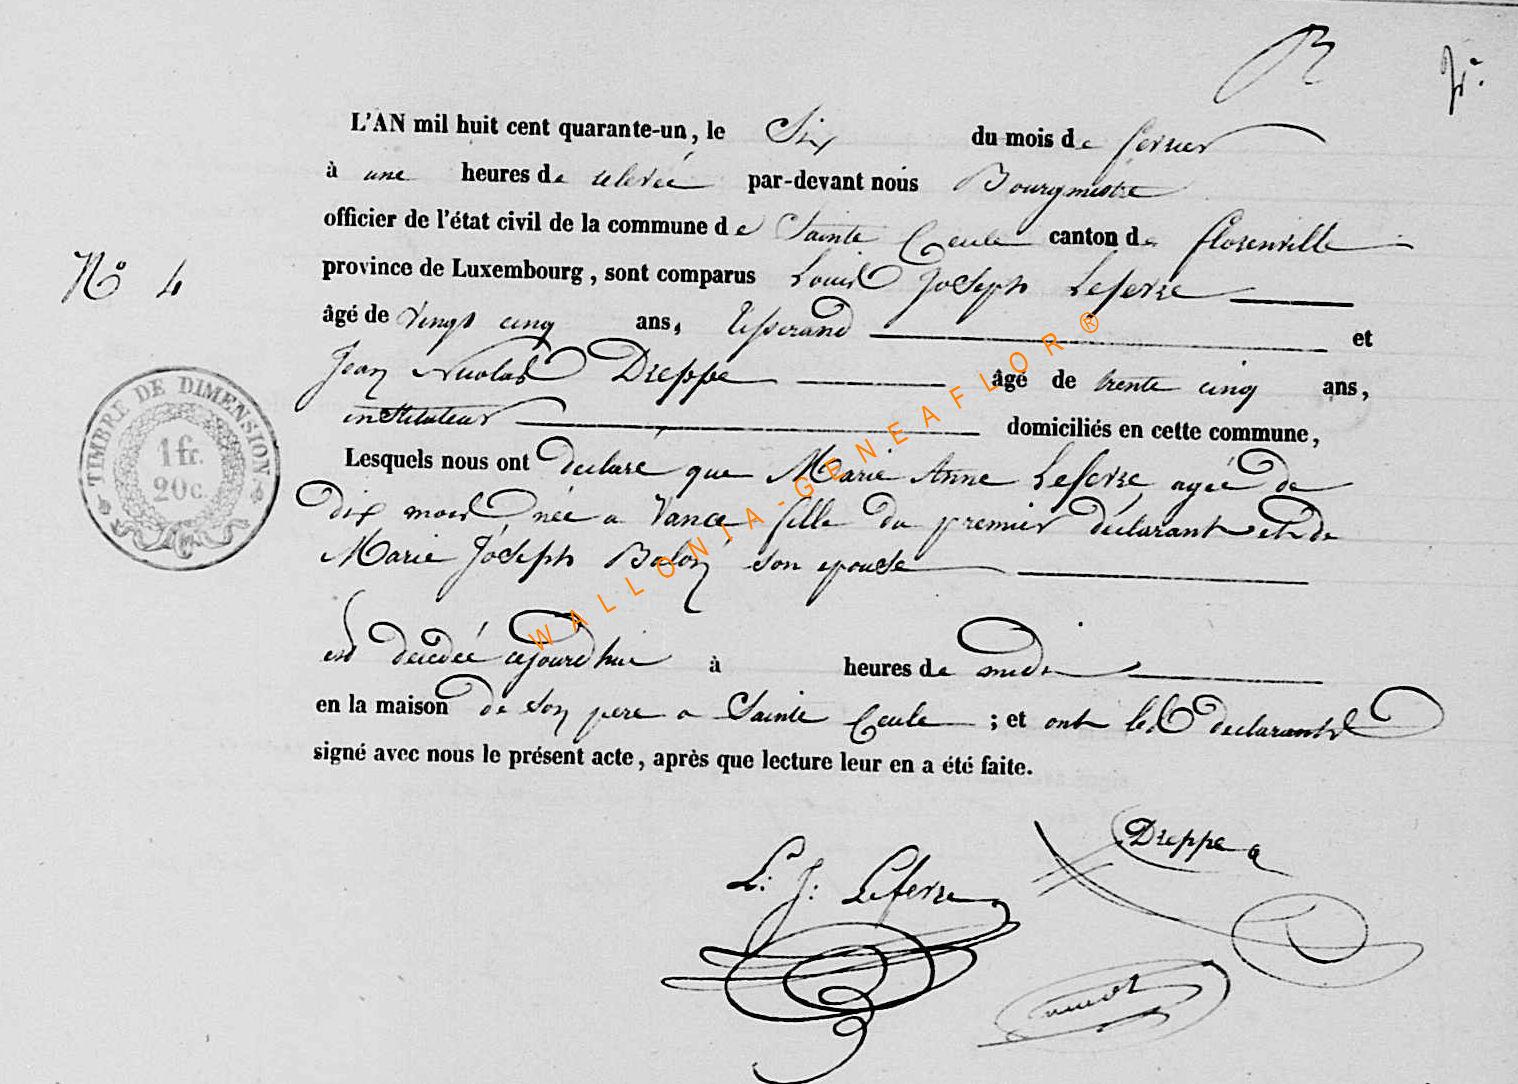 L'AN mil huit cent quarante-un, le Six du mois de fevrier
à une heures de relevée par-devant nous Bourgmestre
officier de l'état civil de la commune de Sainte Cecile canton de florenville
province de Luxembourg, sont comparus Louis Joseph Lefevre
N° 4
âgé de vingt cinq ans, tisserand et
Jean Nicolas Dreppe âgé de trente cinq ans,
instituteur domiciliés en cette commune,
TIMBRE DE DIMENSION
1 fr.
20 c.
Lesquels nous ont declaré que Marie Anne Lefevre agée de
dix mois née a Vance fille du premier déclarant et de
Marie Joseph Balon son epouse
est decedée cejourd'hui à heures de midi
en la maison de son pere a Sainte Cecile ; et ont les declarants
signé avec nous le présent acte, après que lecture leur en a été faite.
Dreppe
L: J: Lefevre
WALLONIA-GENEAFLOR®